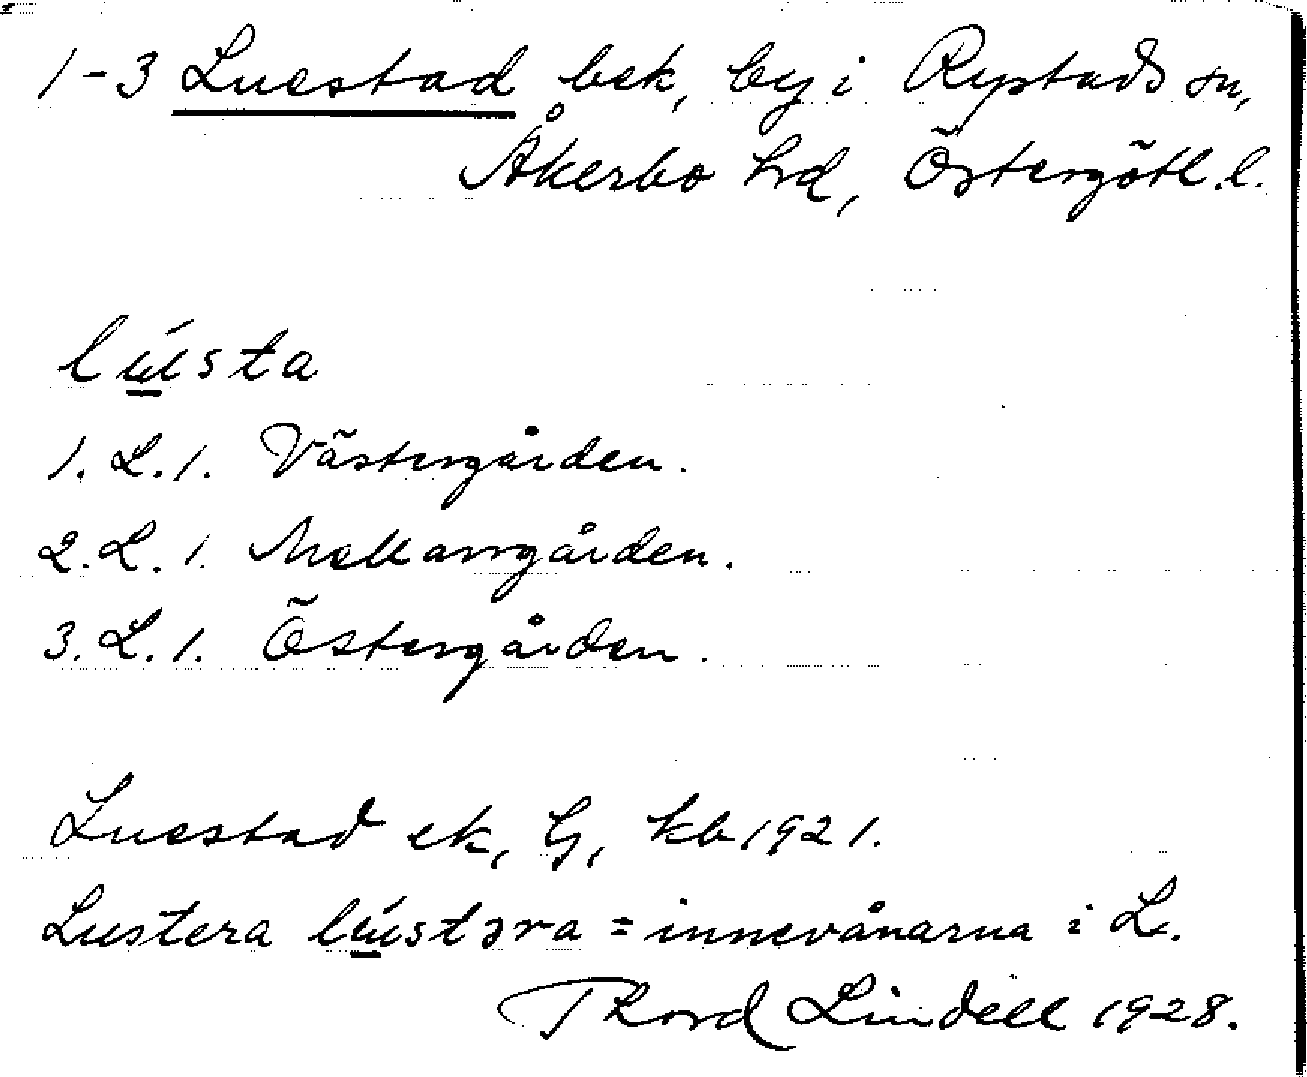 1-3 Luestad bek, by i Rystads sn,
Åkerbo hrd, Östergötl. l.
lú̲sta
1. L. 1. Västergården.
2. L. 1. Mellangården.
3. L. 1. Östergården.
Luestad ek, G, kb 1921.
Lustera lú̲stəra = innevånarna i L.
Thord Lindell 1928.